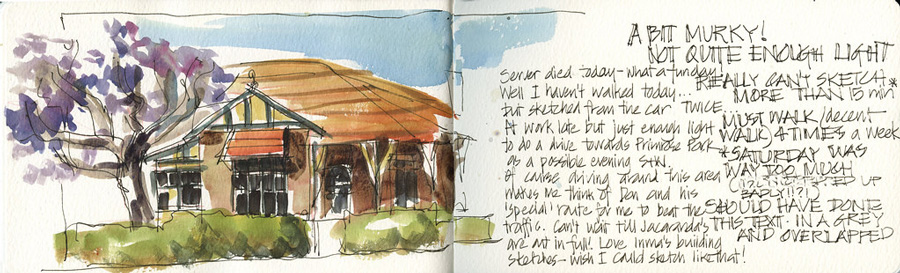 A BIT MURKY!
NOT QUITE ENOUGH LIGHT
Server died today - what a funday!
Well I haven't walked today...
but sketched from the car TWICE.
At work late but just enough light
to do a drive towards Primrose Park
as a possible evening S+W.
Of cause driving around this area
makes me think of Dan and his
'special' route for me to beat the
traffic. Can't wait till Jacaranda's
are out in full! Love Inma's building
sketches - wish I could sketch like that!
REALLY CAN'T SKETCH *
MORE THAN 15 min
MUST WALK/decent
WALK 4 TIMES a WEEK
* SATURDAY WAS
WAY TOO MUCH
UP
BADLY!!?)
SHOULD HAVE DONE
THIS TEXT IN A GREY
AND OVERLAPPED